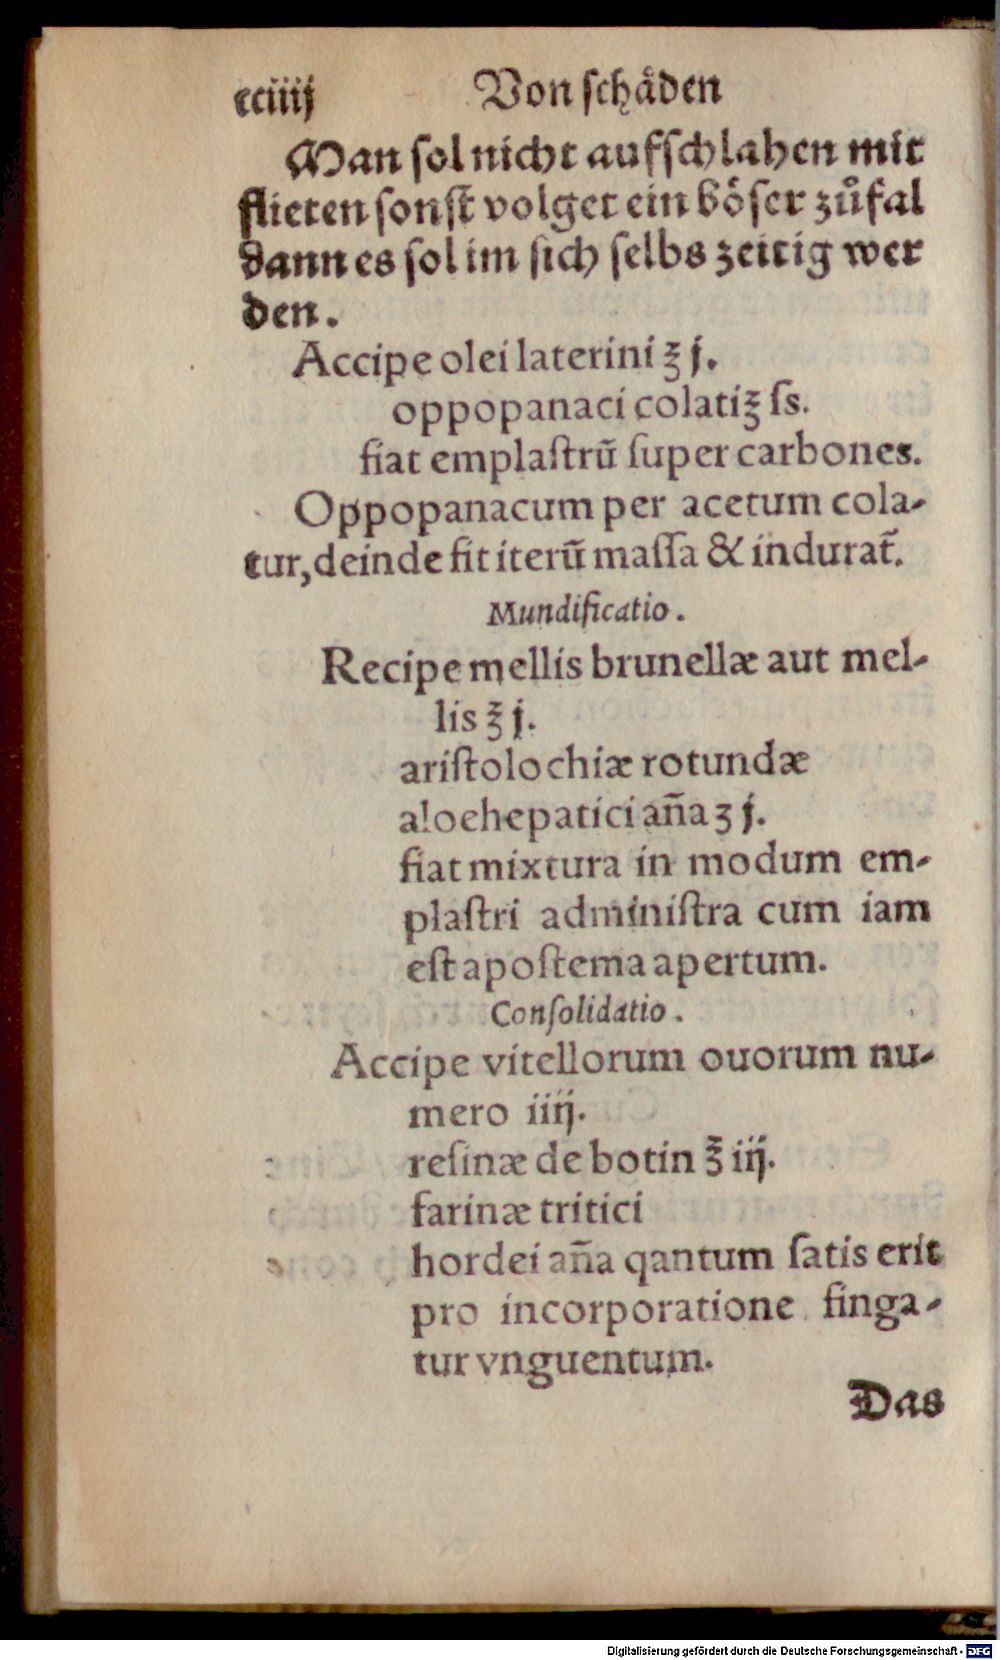 cciiij Von schåden
Man sol nicht aufschlahen mit
flieten sonst volget ein böser zůfal
dann es sol im sich selbs zeitig wer
den.
Accipe olei laterini ℥ j.
oppopanaci colati ℥ ſs.
fiat emplaſtrũ ſuper carbones.
Oppopanacum per acetum cola-
tur, deinde fit iterũ maſſa & indurat̃.
Mundificatio.
Recipe mellis brunellæ aut mel-
lis ℥ j.
ariſtolochiæ rotundæ
aloehepatici aña ʒ j.
fiat mixtura in modum em-
plaſtri adminiſtra cum iam
eſt apoſtema apertum.
Conſolidatio.
Accipe vitellorum ouorum nu-
mero iiij.
reſinæ de botin ℥ iij.
farinæ tritici
hordei aña qantum ſatis erit
pro incorporatione finga-
tur vnguentum.
Das
Digitalisierung gefördert durch die Deutsche Forschungsgemeinschaft - DFG